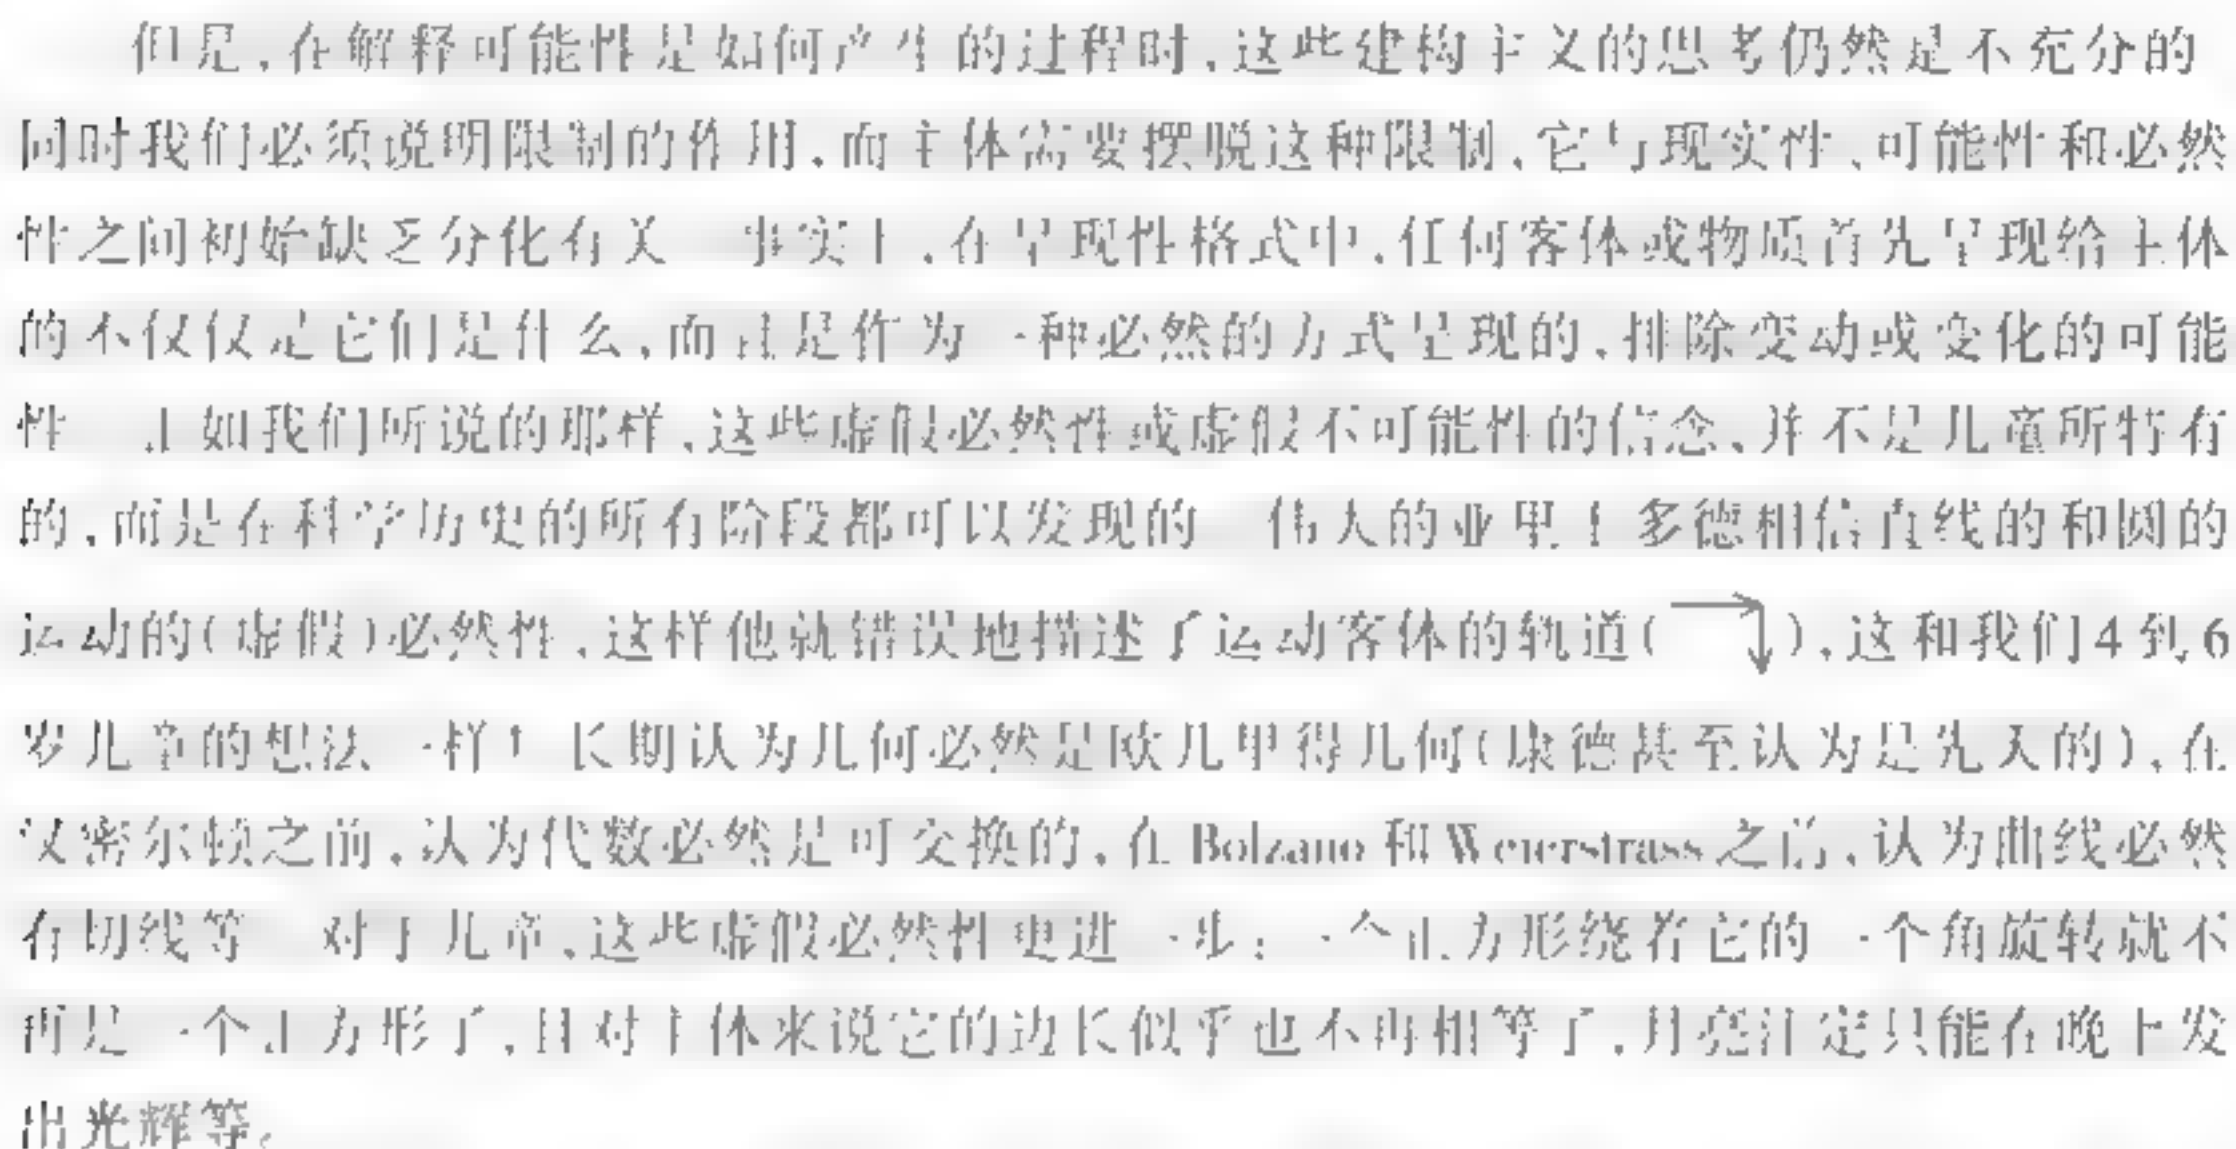 但是,在解释可能性是如何产生的过程时,这些建构主义的思考仍然是不充分的
同时我们必须说明限制的作用,而主体需要摆脱这种限制,它与现实性、可能性和必然
性之间初始缺乏分化有关 事实上,在呈现性格式中,任何客体或物质首先呈现给主体
的不仅仅是它们是什么,而且是作为一种必然的方式呈现的,排除变动或变化的可能
性 正如我们所说的那样,这些虚假必然性或虚假不可能性的信念,并不是儿童所特有
的,而是在科学历史的所有阶段都可以发现的 伟大的亚里士多德相信直线的和圆的
运动的(虚假)必然性,这样他就错误地描述了运动客体的轨道( ),这和我们4到6
岁儿童的想法一样! 长期认为几何必然是欧几里得几何(康德甚至认为是先天的),在
汉密尔顿之前,认为代数必然是可交换的,在Bolzano和Weierstrass之前,认为曲线必然
有切线等 对于儿童,这些虚假必然性更进一步:一个正方形绕着它的一个角旋转就不
再是一个正方形了,且对主体来说它的边长似乎也不再相等了,月亮注定只能在晚上发
出光辉等。